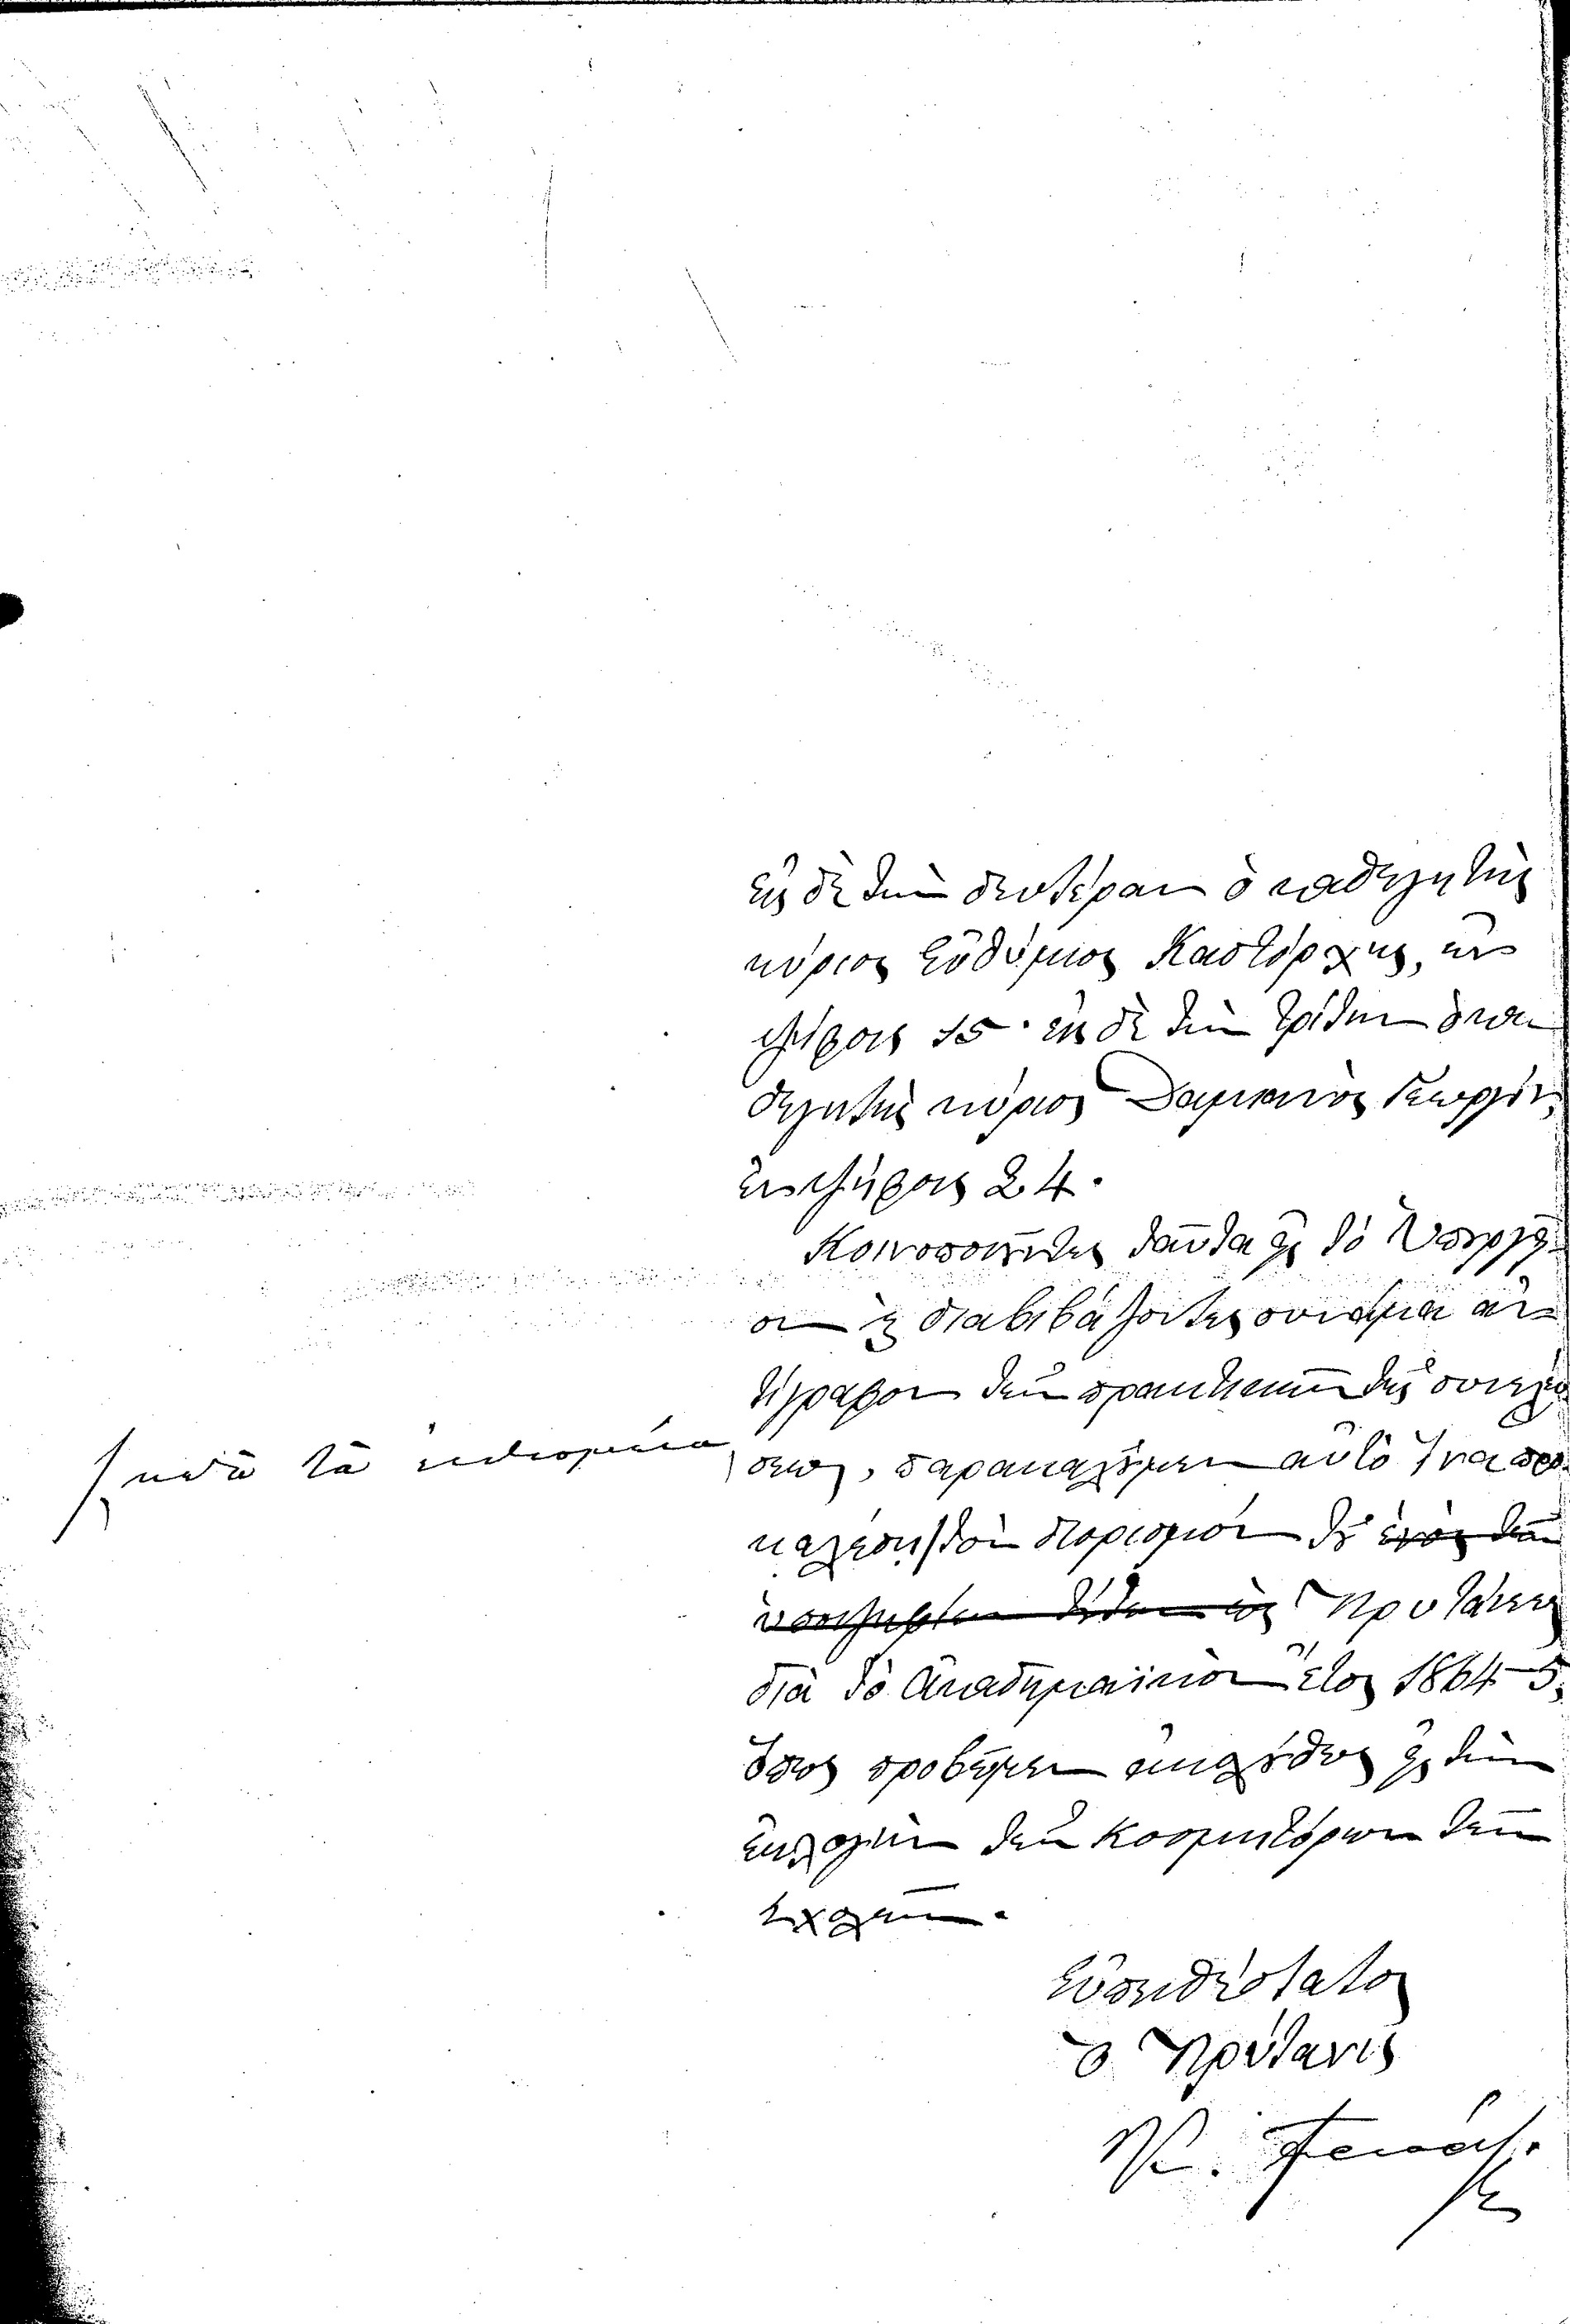 εἰς δὲ τὴν δευτέραν ὁ καθηγητὴς
κύριος Εὐθύμιος Καστόρχης, ἐν
ψήφοις 15· εἰς δὲ τὴν τρίτην ὁ κα
θηγητὴς κύριος Δαμιανὸς Γεωργίου,
ἐν ψήφοις 24.
Κοινοποιοῦντες ταῦτα εἰς τὸ Ὑπουργεῖ-
ον καὶ διαβιβάζοντες συνάμα ἀν-
τίγραφον τῶν πρακτικῶν τῆς συνελεύ
σεως, παρακαλοῦμεν αὐτὸ ἵνα προ-
καλέσῃ τὸν διορισμὸν τοῦ ἑνὸς τῶν
κατὰ τὰ ἐνδεχόμενα
ὑποψηφίων τούτων ὡς Πρυτάνεως
διὰ τὸ Ἀκαδημαϊκὸν ἔτος 1864-5,
ὅπως προβῶμεν ἀκολούθως εἰς τὴν
ἐκλογὴν τῶν Κοσμητόρων τῶν
Σχολῶν.
Εὐπειθέστατος
Ὁ Πρύτανις